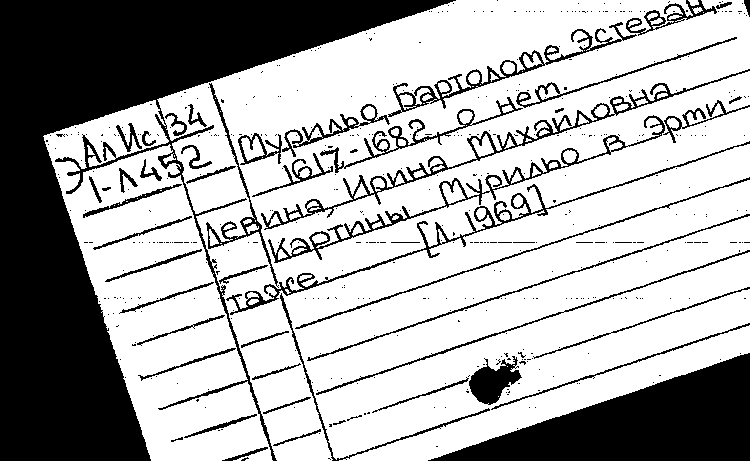 Э АлИс 134
1-Л452
Мурильо, Бартоломе Эстебан,-
1617-1682, о нем.
Левина, Ирина Михайловна.
Картины Мурильо в Эрми-
таже. [Л., 1969].